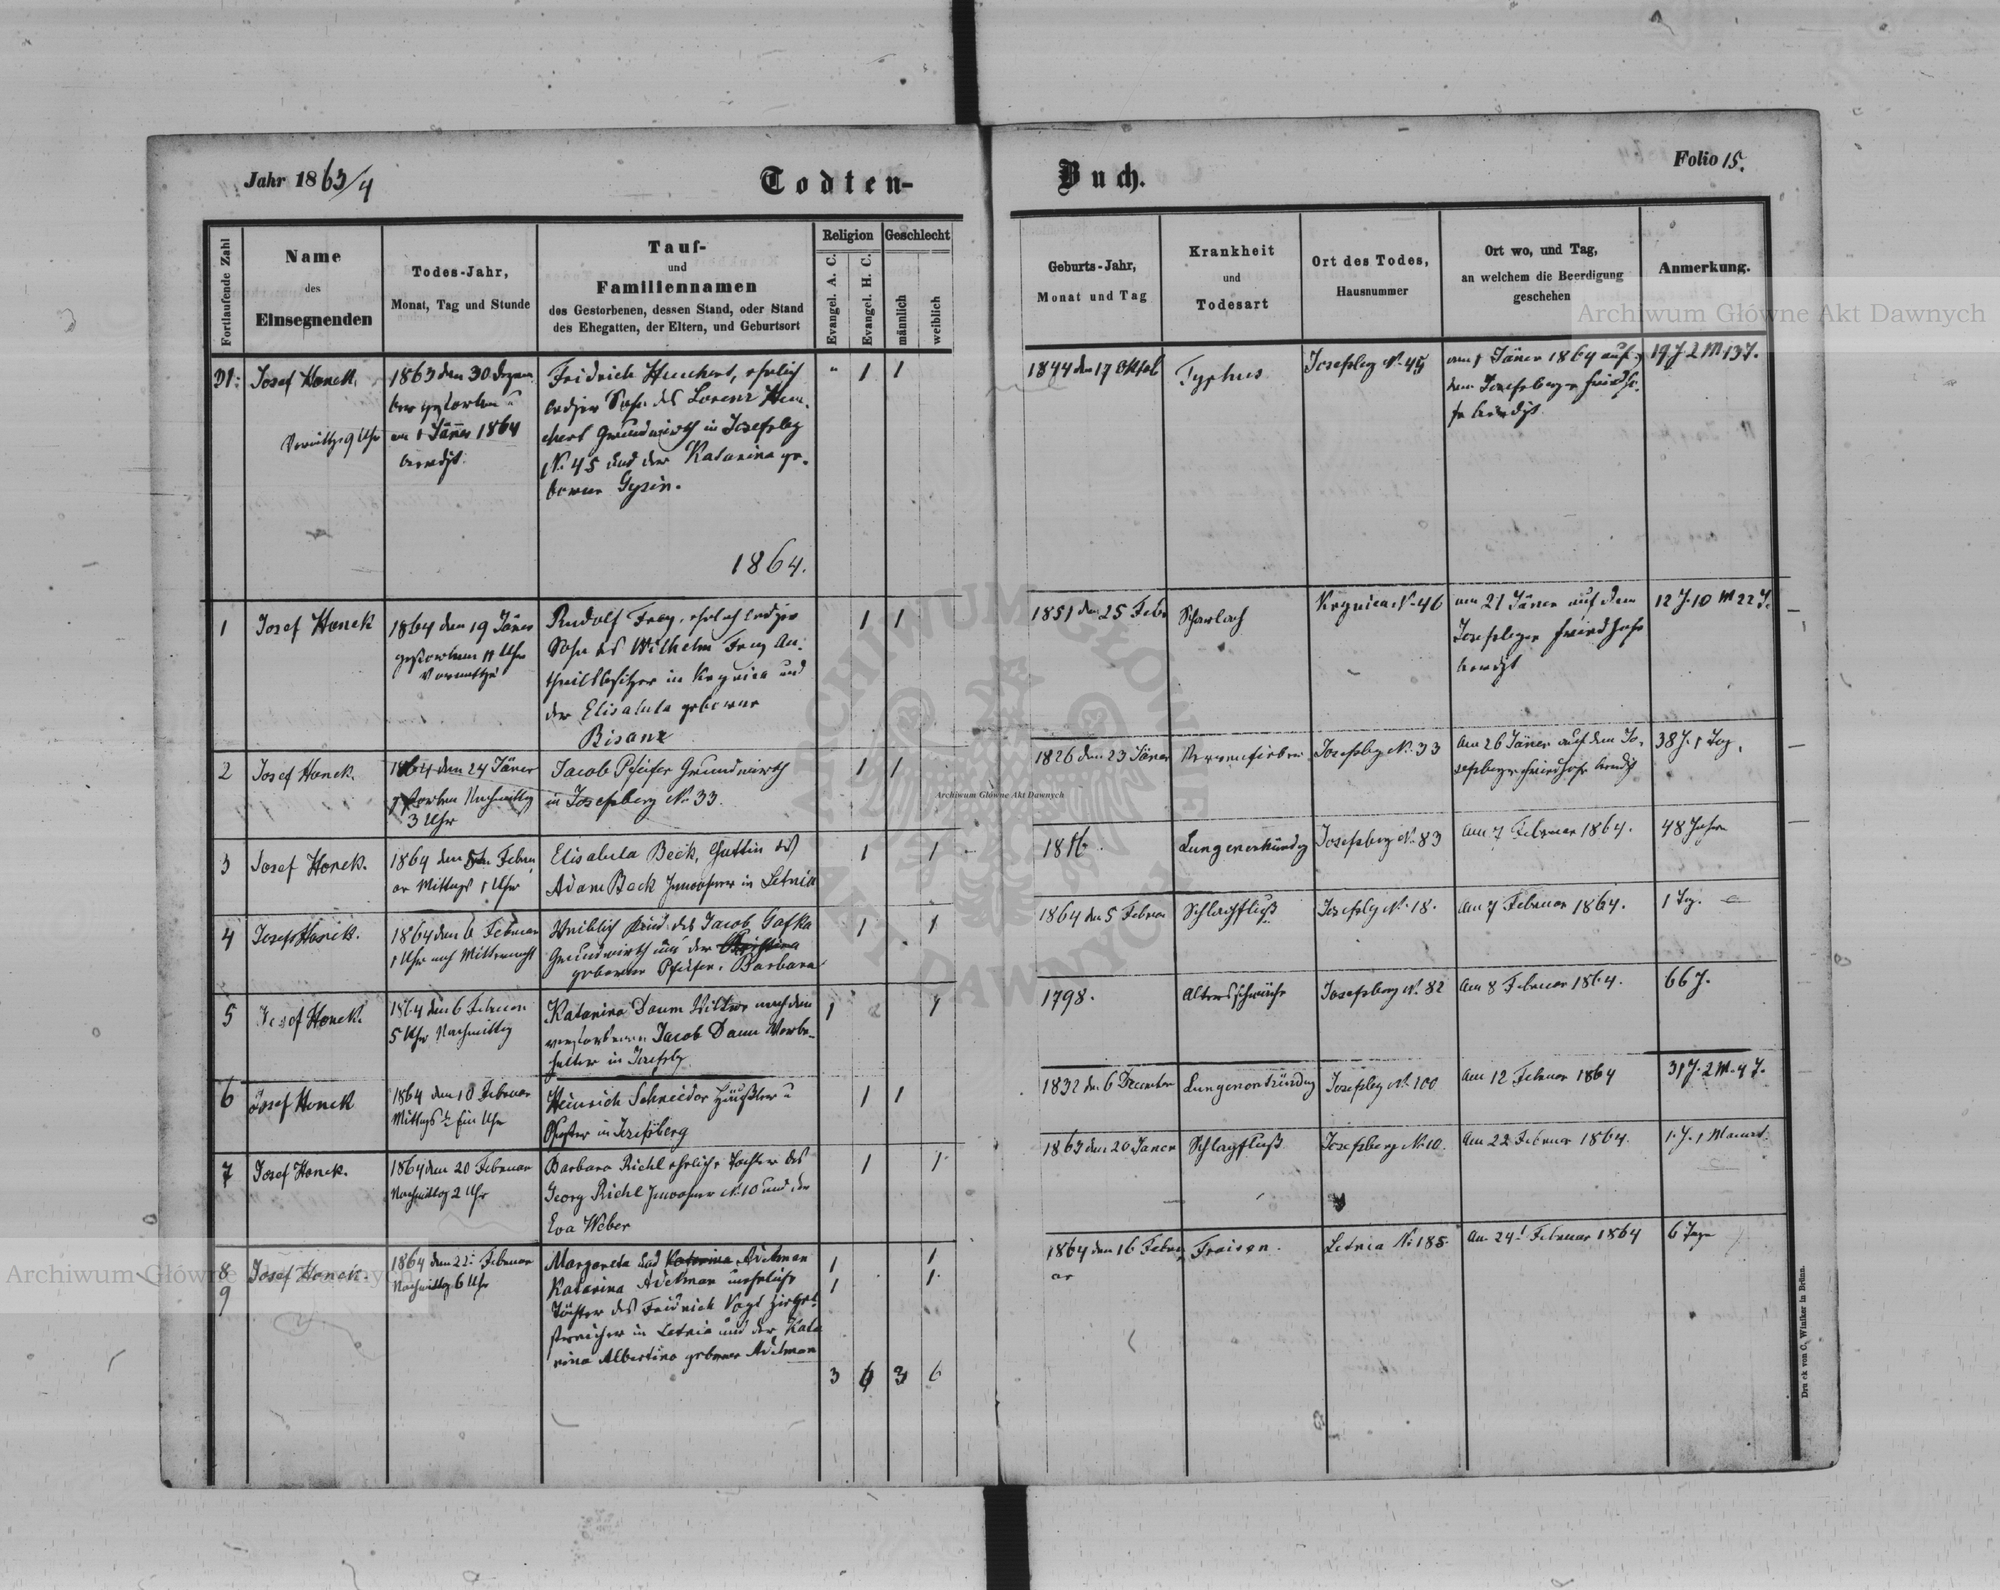 Jahr 1863/4
Todten-
Buch.
Folio 15.
Fortlaufende Zahl
Name
des
Einsegnenden
Todes-Jahr,
Monat, Tag und Stunde
Tauf-
und
Familiennamen
des Gestorbenen, dessen Stand, oder Stand
des Ehegatten, der Eltern, und Geburtsort
Religion
Evangel. A. C.
Evangel. H. C.
Geschlecht
männlich
weiblich
Geburts-Jahr,
Monat und Tag
Krankheit
und
Todesart
Ort des Todes,
Hausnummer
Ort wo, und Tag,
an welchem die Beerdigung
geschehen
Anmerkung.
Josef Honek
Vormittgs 9 Uhr
1863 den 30 Dezem
ber gestorben u
am 1 Jäner 1864
beerdgt.
Fridrich Huchert, ehrlich
lediger Sohn des Lorenz Hu-
chert Grundwirth in Josefsbg
No 45 und der Katarina ge-
borene Gysin.
" 1 1
1844 den 17 Oktob
Typhus
Josefsbg No 45
am 1 Jäner 1864 auf
dem Josefsberger Friedho-
fe beerdgt
19 J. 2 M 13 T.
1864.
1
Josef Honek
1864 den 19 Jäner
gestorben 11 Uhr
Vormittgs
Rudolf Frey, ehrlich lediger
Sohn des Wilhelm Frey An-
theilsbesitzer in Krynica und
der Elisabeta geborene
Bisanz
1 1
1851 den 25 Febr
Scharlach
Krynica No 46
am 21 Jäner auf dem
Josefsberger Friedhofe
beerdgt
12 J. 10 M 22 T.
2
Josef Honek.
1864 den 24 Jäner
gestorben Nachmittg
3 Uhr
Jacob Pfeifer Grundwirth
in Josefsberg No 33.
1 1
1826 den 23 Jäner
Nervenfieber
Josefsbg No 33
Am 26 Jäner auf dem Jo-
sefsberger Friedhofe beerdgt
38 J. 1 Tag.
3
Josef Honek.
1864 den 5te Febru
ar Mittags 1 Uhr
Elisabeta Beck, Gattin des
Adam Beck Inwohner in Letnia
1 1
1816.
Lungenentzündg
Josefsberg No 83
Am 7 Februar 1864.
48 Jahre
4
Josef Honek.
1864 den 6 Februar
1 Uhr nach Mitternacht
Weiblich Kind des Jacob Gafka
Grundwirth und der Christina
geborene Pfeifer. Barbara
1 1
1864 den 5 Februar
Schlagfluß
Josefsbg No 18.
Am 7 Februar 1864.
1 Tag.
5
Josef Honek.
1864 den 6 Februar
5 Uhr Nachmittg
Katarina Daum Witwe nach dem
verstorbenen Jacob Daum Vorbe-
halter in Josefsbg
1 1
1798.
Altersschwäche
Josefsberg No 82
Am 8 Februar 1864.
66 J.
6
Josef Honek
1864 den 10 Februar
Mittags ½ Ein Uhr
Heinrich Schneider Häußler u
Schuster in Josefsberg
1 1
1832 den 6 December
Lungenentzündg
Josefsbg No 100
Am 12 Februar 1864
31 J. 2 M. 4 T.
7
Josef Honek.
1864 den 20 Februar
Nachmittag 2 Uhr
Barbara Richl ehrliche Tochter des
Georg Richl Inwohner No 10 und der
Eva Weber
1 1
1863 den 20 Janer
Schlagfluß
Josefsberg No 10.
Am 22 Februar 1864.
1. J. 1 Monat.
8
9
Josef Honek.
1864 den 22. Februar
Nachmittag 6 Uhr
Margareta und Katarina Adelman
Katarina Adelman unehrliche
Töchter des Fridrich Vogt Ziegel-
streicher in Letnia und der Kata
rina Albertina geborene Adelman
1 1
1 1
1864 den 16 Febru
ar
Fraisen.
Letnia No 185
Am 24. Februar 1864
6 Tage
3 6 3 6
Druck von C. Winiker in Brünn.
Archiwum Główne Akt Dawnych
Archiwum Główne Akt Dawnych
Archiwum Główne Akt Dawnych
ARCHIWUM GŁÓWNE AKT DAWNYCH